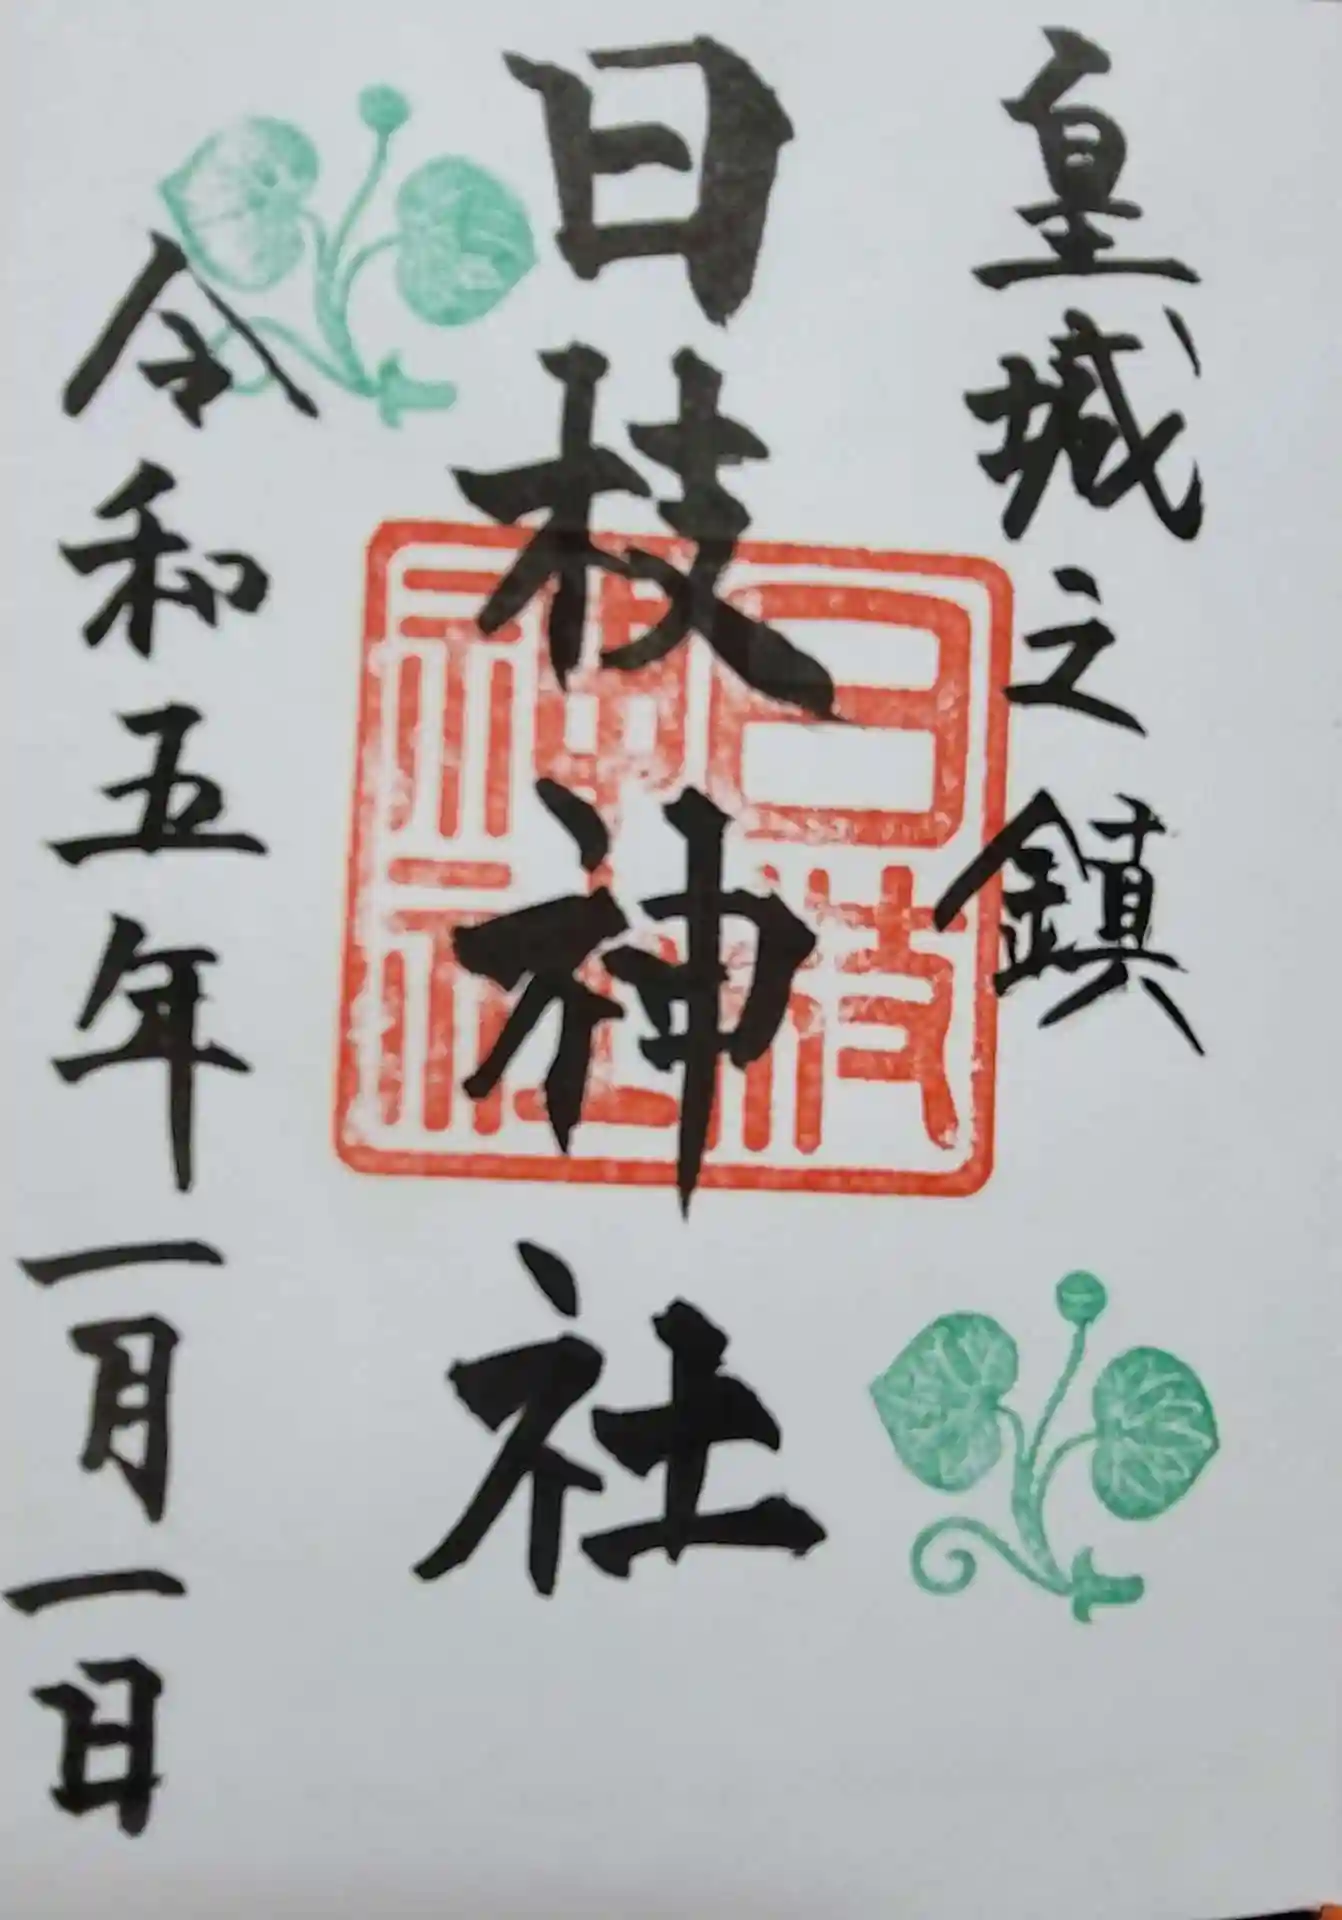 皇城之鎮
日枝神社
日枝神社
令和五年一月一日